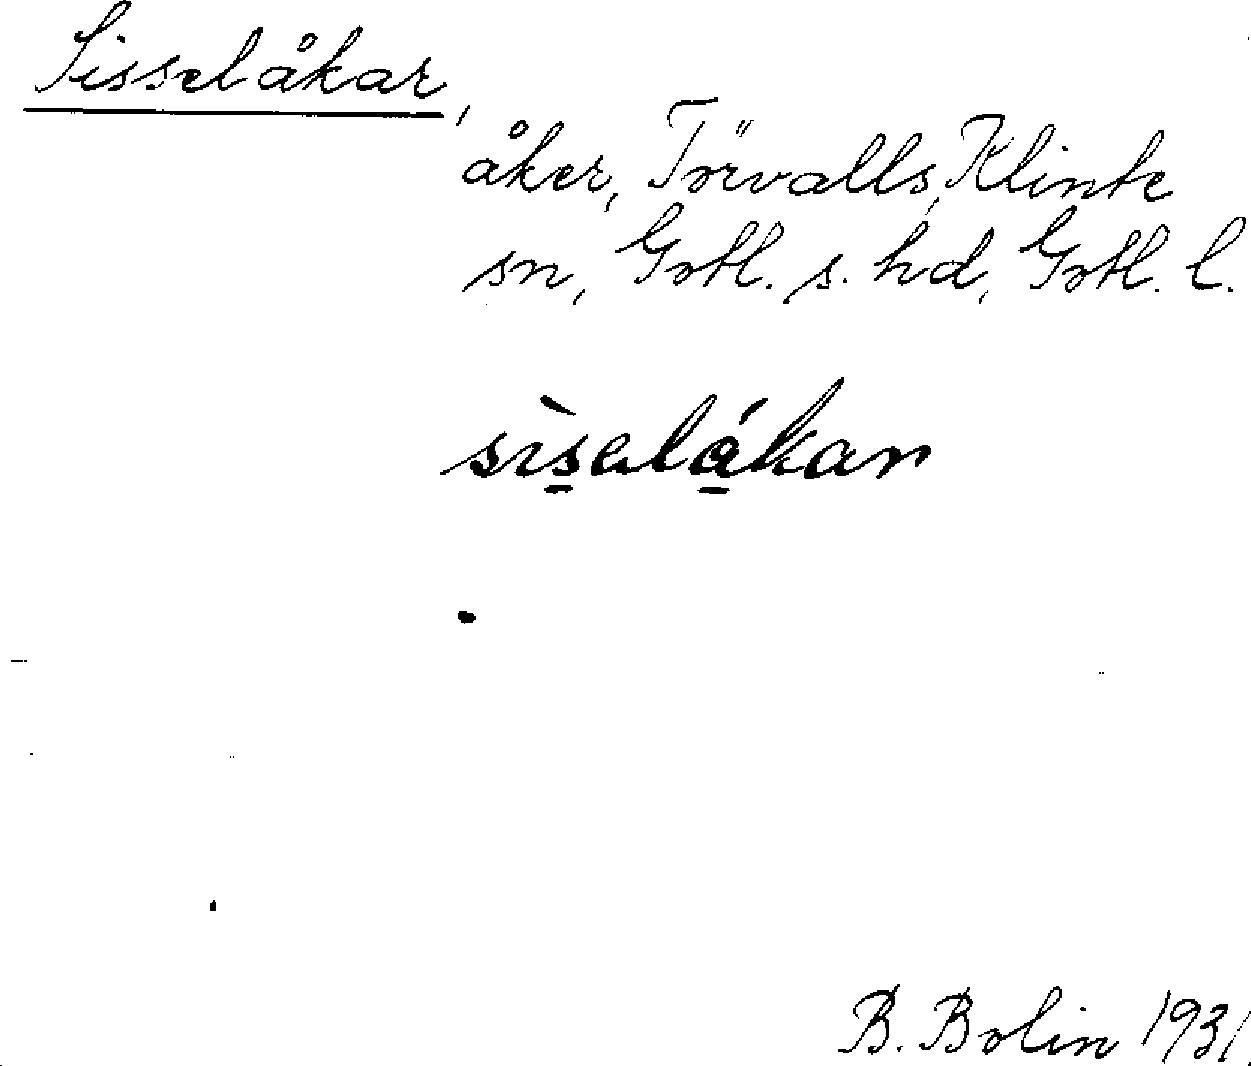 Sisselåkar,
åker, Törvalls, Klinte
sn, Gotl. s. hd, Gotl. l.
B. Bolin 1931.